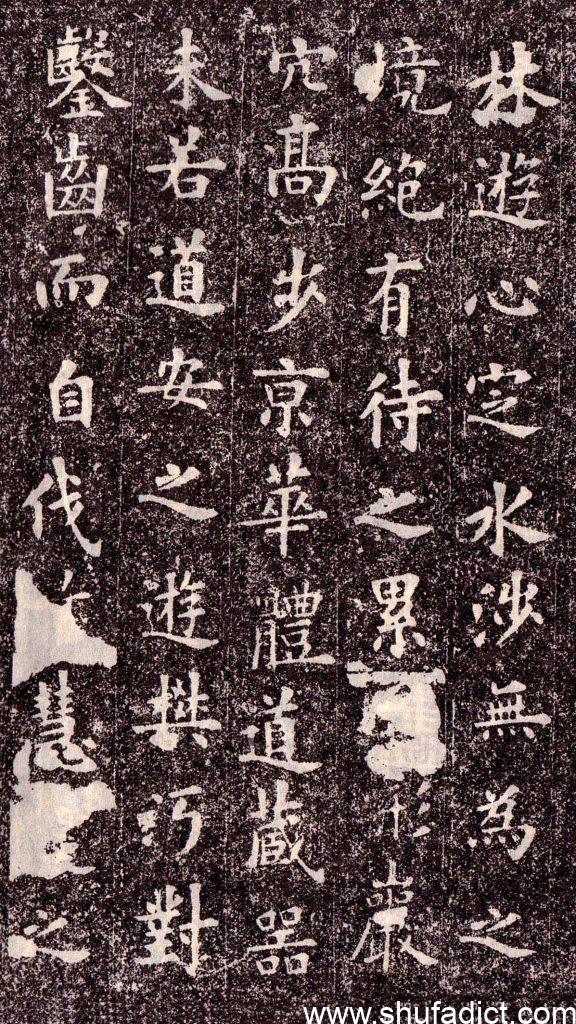 林遊心定水涉無為之
境絕有待之累形巖
穴高步京華體道藏器
未若道安之遊樊沔對
鑿齒而自伐慧之
www.shufadict.com